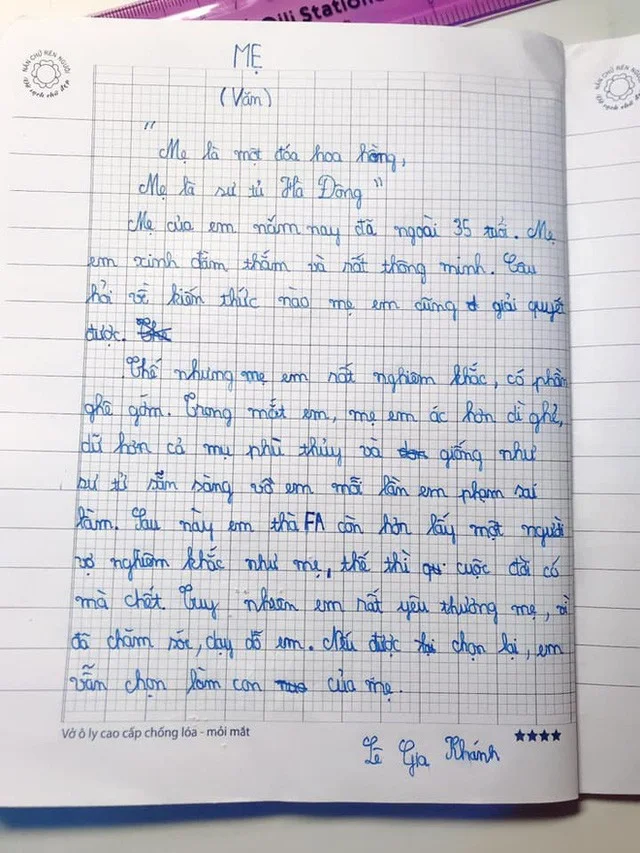 Oli Station
NẮN CHỮ RÈN NGƯỜI
Giữ vở sạch chữ đẹp
NẮN CHỮ RÈN
MẸ
(Văn)
"
Mẹ là một đóa hoa hồng,
Mẹ là sư tử Hà Đông"
Mẹ của em năm nay đã ngoài 35 tuổi. Mẹ
em xinh đằm thắm và rất thông minh. Câu
hỏi về kiến thức nào mẹ em cũng giải quyết
được.
Thế nhưng mẹ em rất nghiêm khắc, có phần
ghê gớm. Trong mắt em, mẹ em ác hơn dì ghẻ,
dữ hơn cả mụ phù thủy và giống như
sư tử sẵn sàng vồ em mỗi lần em phạm sai
lầm. Sau này em thà FA còn hơn lấy một người
vợ nghiêm khắc như mẹ, thế thì cuộc đời có
mà chết. Tuy nhiên em rất yêu thương mẹ, vì
đã chăm sóc, dạy dỗ em. Nếu được chọn lại, em
vẫn chọn làm con của mẹ.
Vở ô ly cao cấp chống lóa - mỏi mắt
Lê Gia Khánh